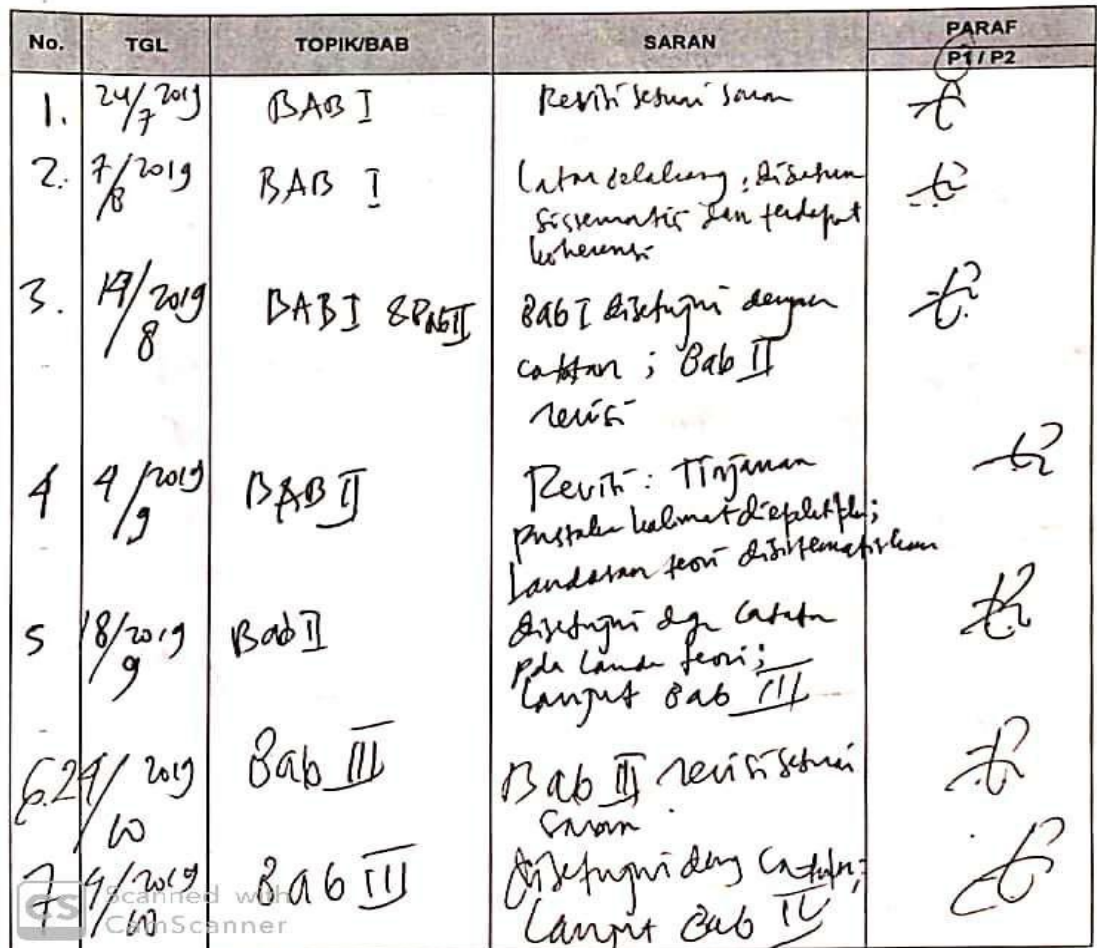 No. TGL TOPIK/BAB SARAN PARAF
P1 / P2
1. 24/7 2019 BAB I Revisi sesuai saran
2. 7/8 2019 BAB I Latar belakang, disusun
sistematis dan terdapat
koherensi
3. 19/8 2019 BAB I & Bab II Bab I disetujui dengan
catatan ; Bab II
revisi
4 4/9 2019 BAB II Revisi : Tinjauan
pustaka kalimat
Landasan teori disistematiskan
5 18/9 2019 Bab II disetujui dgn catatan
pda landa teori ;
Lanjut Bab III
6. 2019 Bab III Bab III revisi sesuai
saran
7 9/10 2019 Bab III disetujui deng catatan ;
Lanjut Bab IV
CS Scanned with
CamScanner